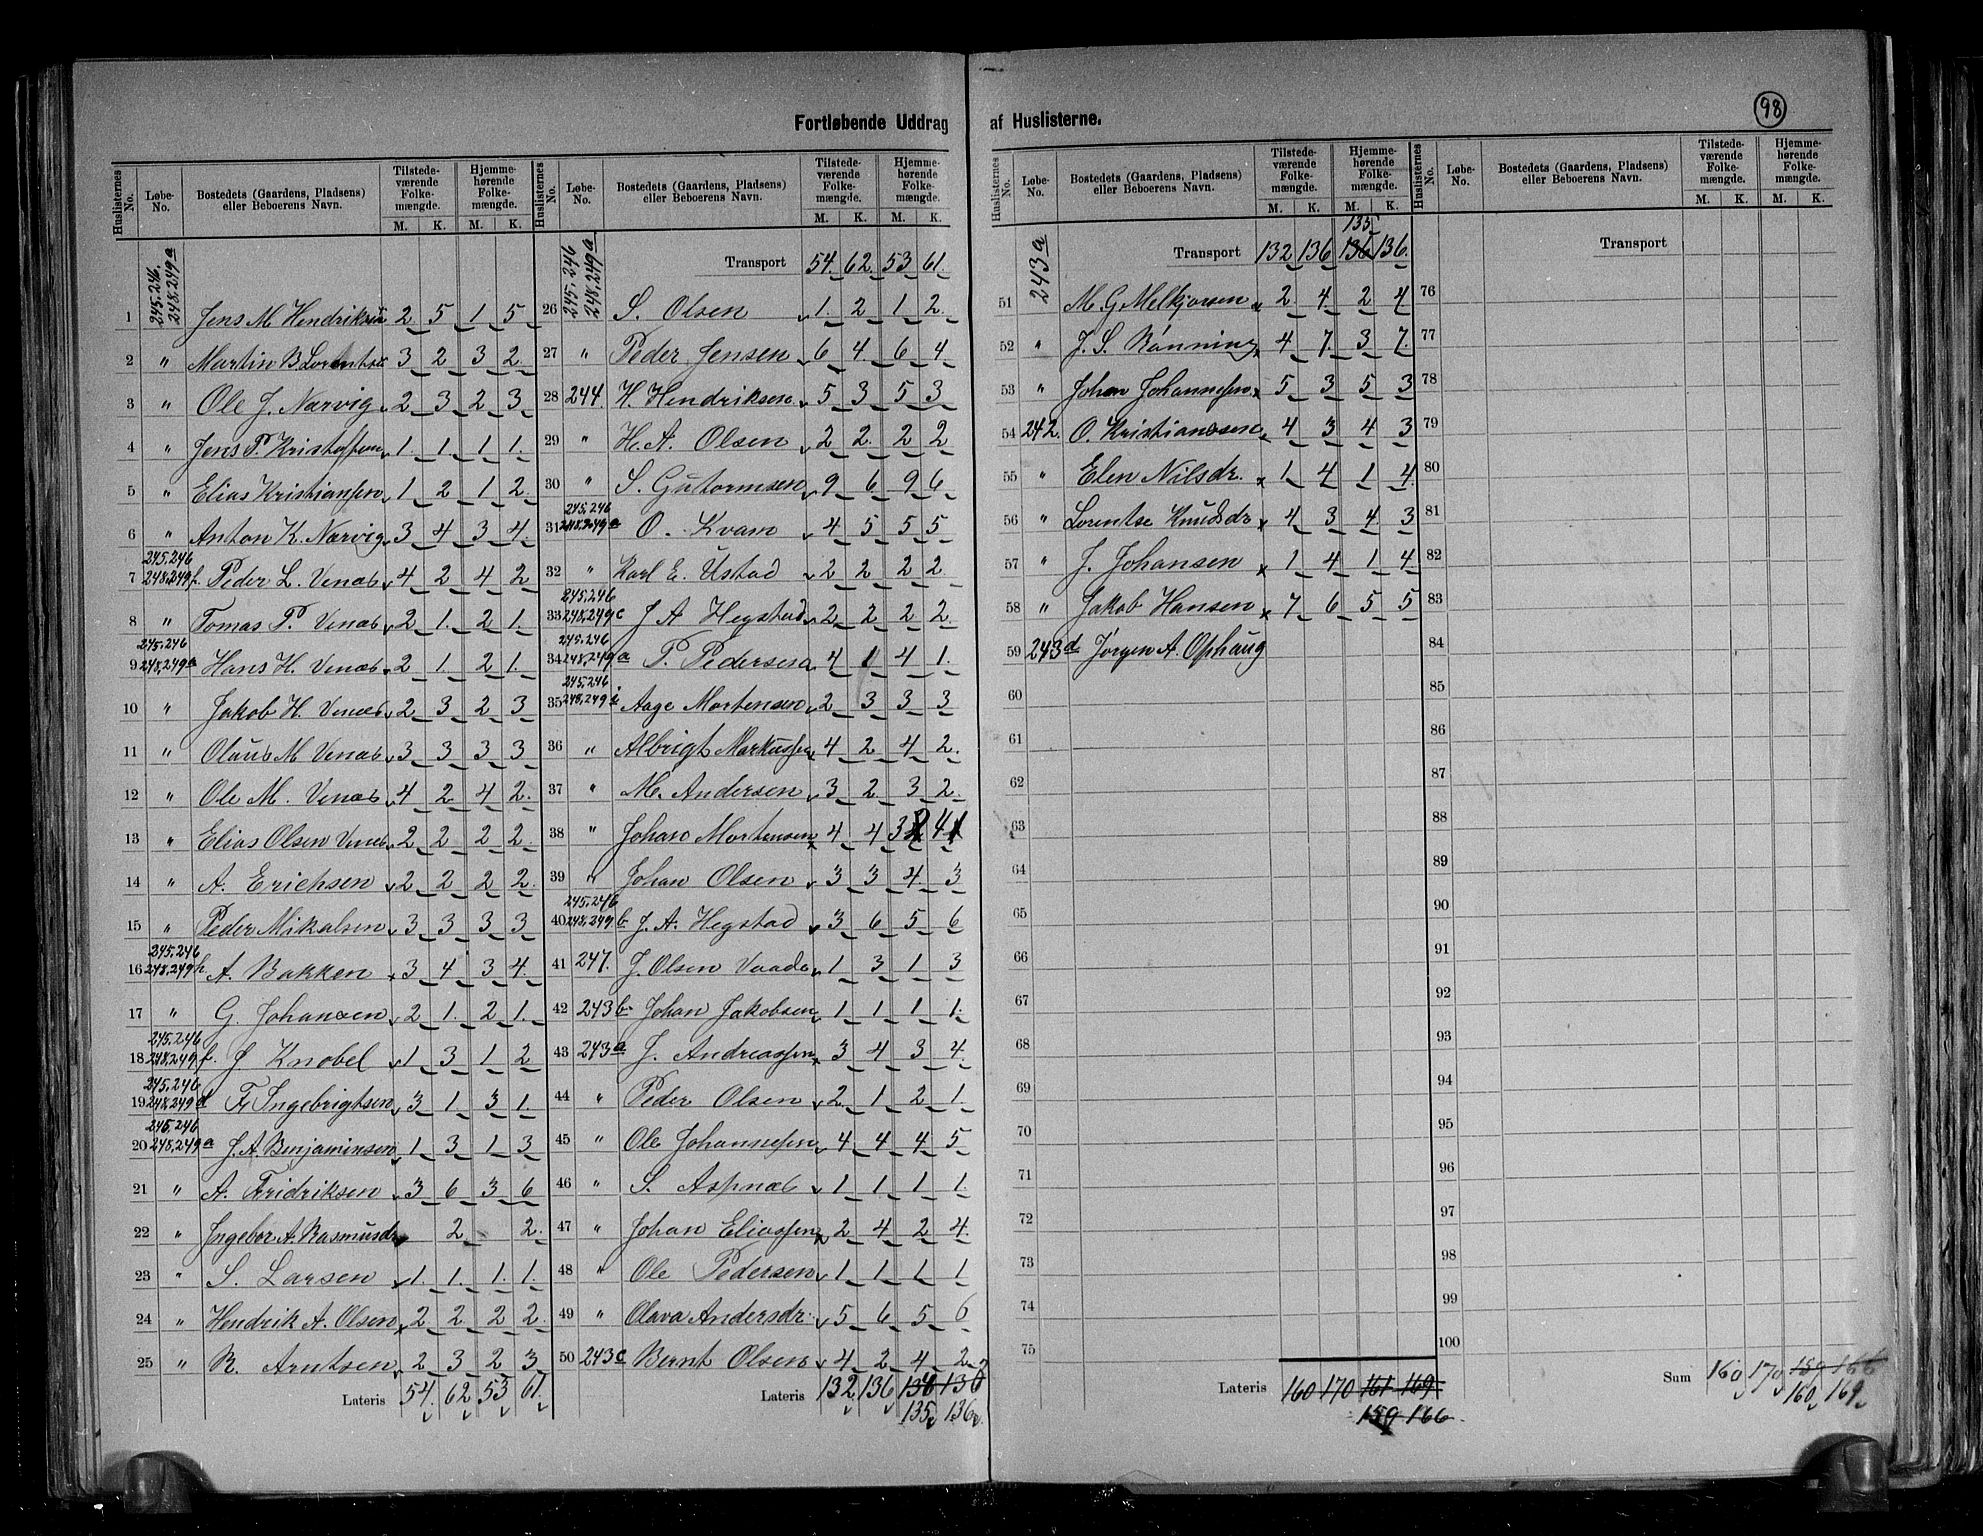 Fortløbende Uddrag af Huslisterne.
98
Huslisternes No. | Løbe-No. | Bostedets (Gaardens, Pladsens) eller Beboerens Navn. | Tilstedeværende Folkemængde. M. K. | Hjemmehørende Folkemængde. M. K.
1 245,246 248,249a Jens M Hendriksen 2 5 1 5
2 " Martin B Lorentsen 3 2 3 2
3 " Ole J. Nærvig 2 3 2 3
4 " Jens P. Kristoffersen 1 1 1 1
5 " Elias Kristiansen 1 2 1 2
6 " Anton K. Nærvig 3 4 3 4
7 245,246 248,249f. Peder L. Venæs 4 2 4 2
8 " Tomas P. Venæs 2 1 2 1
9 245,246 248,249a Hans H. Venæs 2 1 2 1
10 " Jakob H. Venæs 2 3 2 3
11 " Olaus M Venæs 3 3 3 3
12 " Ole M. Venæs 4 2 4 2
13 " Elias Olsen Venæs 2 2 2 2
14 " A. Erichsen 2 2 2 2
15 " Peder Mikalsen 3 3 3 3
16 245,246 248,249h. A. Bakken 3 4 3 4
17 " G. Johansen 2 1 2 1
18 245,246 248,249f. J Knobel 1 3 1 2
19 245,246 248,249d Fr Ingebrigtsen 3 1 3 1
20 245,246 248,249a J. A. Benjaminsen 1 3 1 3
21 " A. Fridriksen 3 6 3 6
22 " Ingebor A. Rasmusdr 2 2
23 " S. Larsen 1 1 1 1
24 " Hendrik A. Olsen 2 2 2 2
25 " R. Arntsen 2 3 2 3
Lateris 54 62 53 61
Huslisternes No. | Løbe-No. | Bostedets (Gaardens, Pladsens) eller Beboerens Navn. | Tilstedeværende Folkemængde. M. K. | Hjemmehørende Folkemængde. M. K.
Transport 54. 62. 53 61.
26 245,246 248,249a S. Olsen 1 2 1 2
27 " Peder Jensen 6 4 6 4
28 244. H. Hendriksen 5 3 5 3
29 " H. A. Olsen 2 2 2 2
30 " S. Gutormsen 9 6 9 6
31 245,246 248,249a O. Kvam 4 5 5 5
32 " Karl E. Ustad 2 2 2 2
33 245,246 248,249c J A Hegstad 2 2 2 2
34 245,246 248,249a P. Pedersen 4 1 4 1
35 245,246 248,249i Aage Mortensen 2 3 3 3
36 " Albrigt Markussen 4 2 4 2
37 " M. Andersen 3 2 3 2
38 " Johan Mortensen 4 4 3 4
39 " Johan Olsen 3 3 4 3
40 245,246 248,249b J. A. Hegstad 3 6 5 6
41 247. J. Olsen Vaade 1 3 1 3
42 243b Johan Jakobsen 1 1 1 1
43 243a J. Andreassen 3 4 3 4
44 " Peder Olsen 2 1 2 1
45 " Ole Johannesen 4 4 4 5
46 " S. Aspnæs 1 1 1 1
47 " Johan Eliassen 2 4 2 4
48 " Ole Pedersen 1 1 1 1
49 " Olava Andersdr. 5 6 5 6
50 243c Bernt Olsen 4 2 4 2
Lateris 132 136 136 136
135 136
Huslisternes No. | Løbe-No. | Bostedets (Gaardens, Pladsens) eller Beboerens Navn. | Tilstedeværende Folkemængde. M. K. | Hjemmehørende Folkemængde. M. K.
135
Transport 132 136 136 136.
51 243a M. G. Melkjorsen 2 4 2 4
52 " J. S. Rønning 4 7 3 7
53 " Johan Johannesen 5 3 5 3
54 242. O. Kristianssen 4 3 4 3
55 " Elen Nilsdr. 1 4 1 4
56 " Lorentse Knudsdr 4 3 4 3
57 " J. Johansen 1 4 1 4
58 " Jakob Hansen 7 6 5 5
59 243d Jørgen A. Ophaug
60
61
62
63
64
65
66
67
68
69
70
71
72
73
74
75
Lateris 160 170 161 169
159 166
Huslisternes No. | Løbe-No. | Bostedets (Gaardens, Pladsens) eller Beboerens Navn. | Tilstedeværende Folkemængde. M. K. | Hjemmehørende Folkemængde. M. K.
Transport
76
77
78
79
80
81
82
83
84
85
86
87
88
89
90
91
92
93
94
95
96
97
98
99
100
Sum 160 170 159 166
160 169